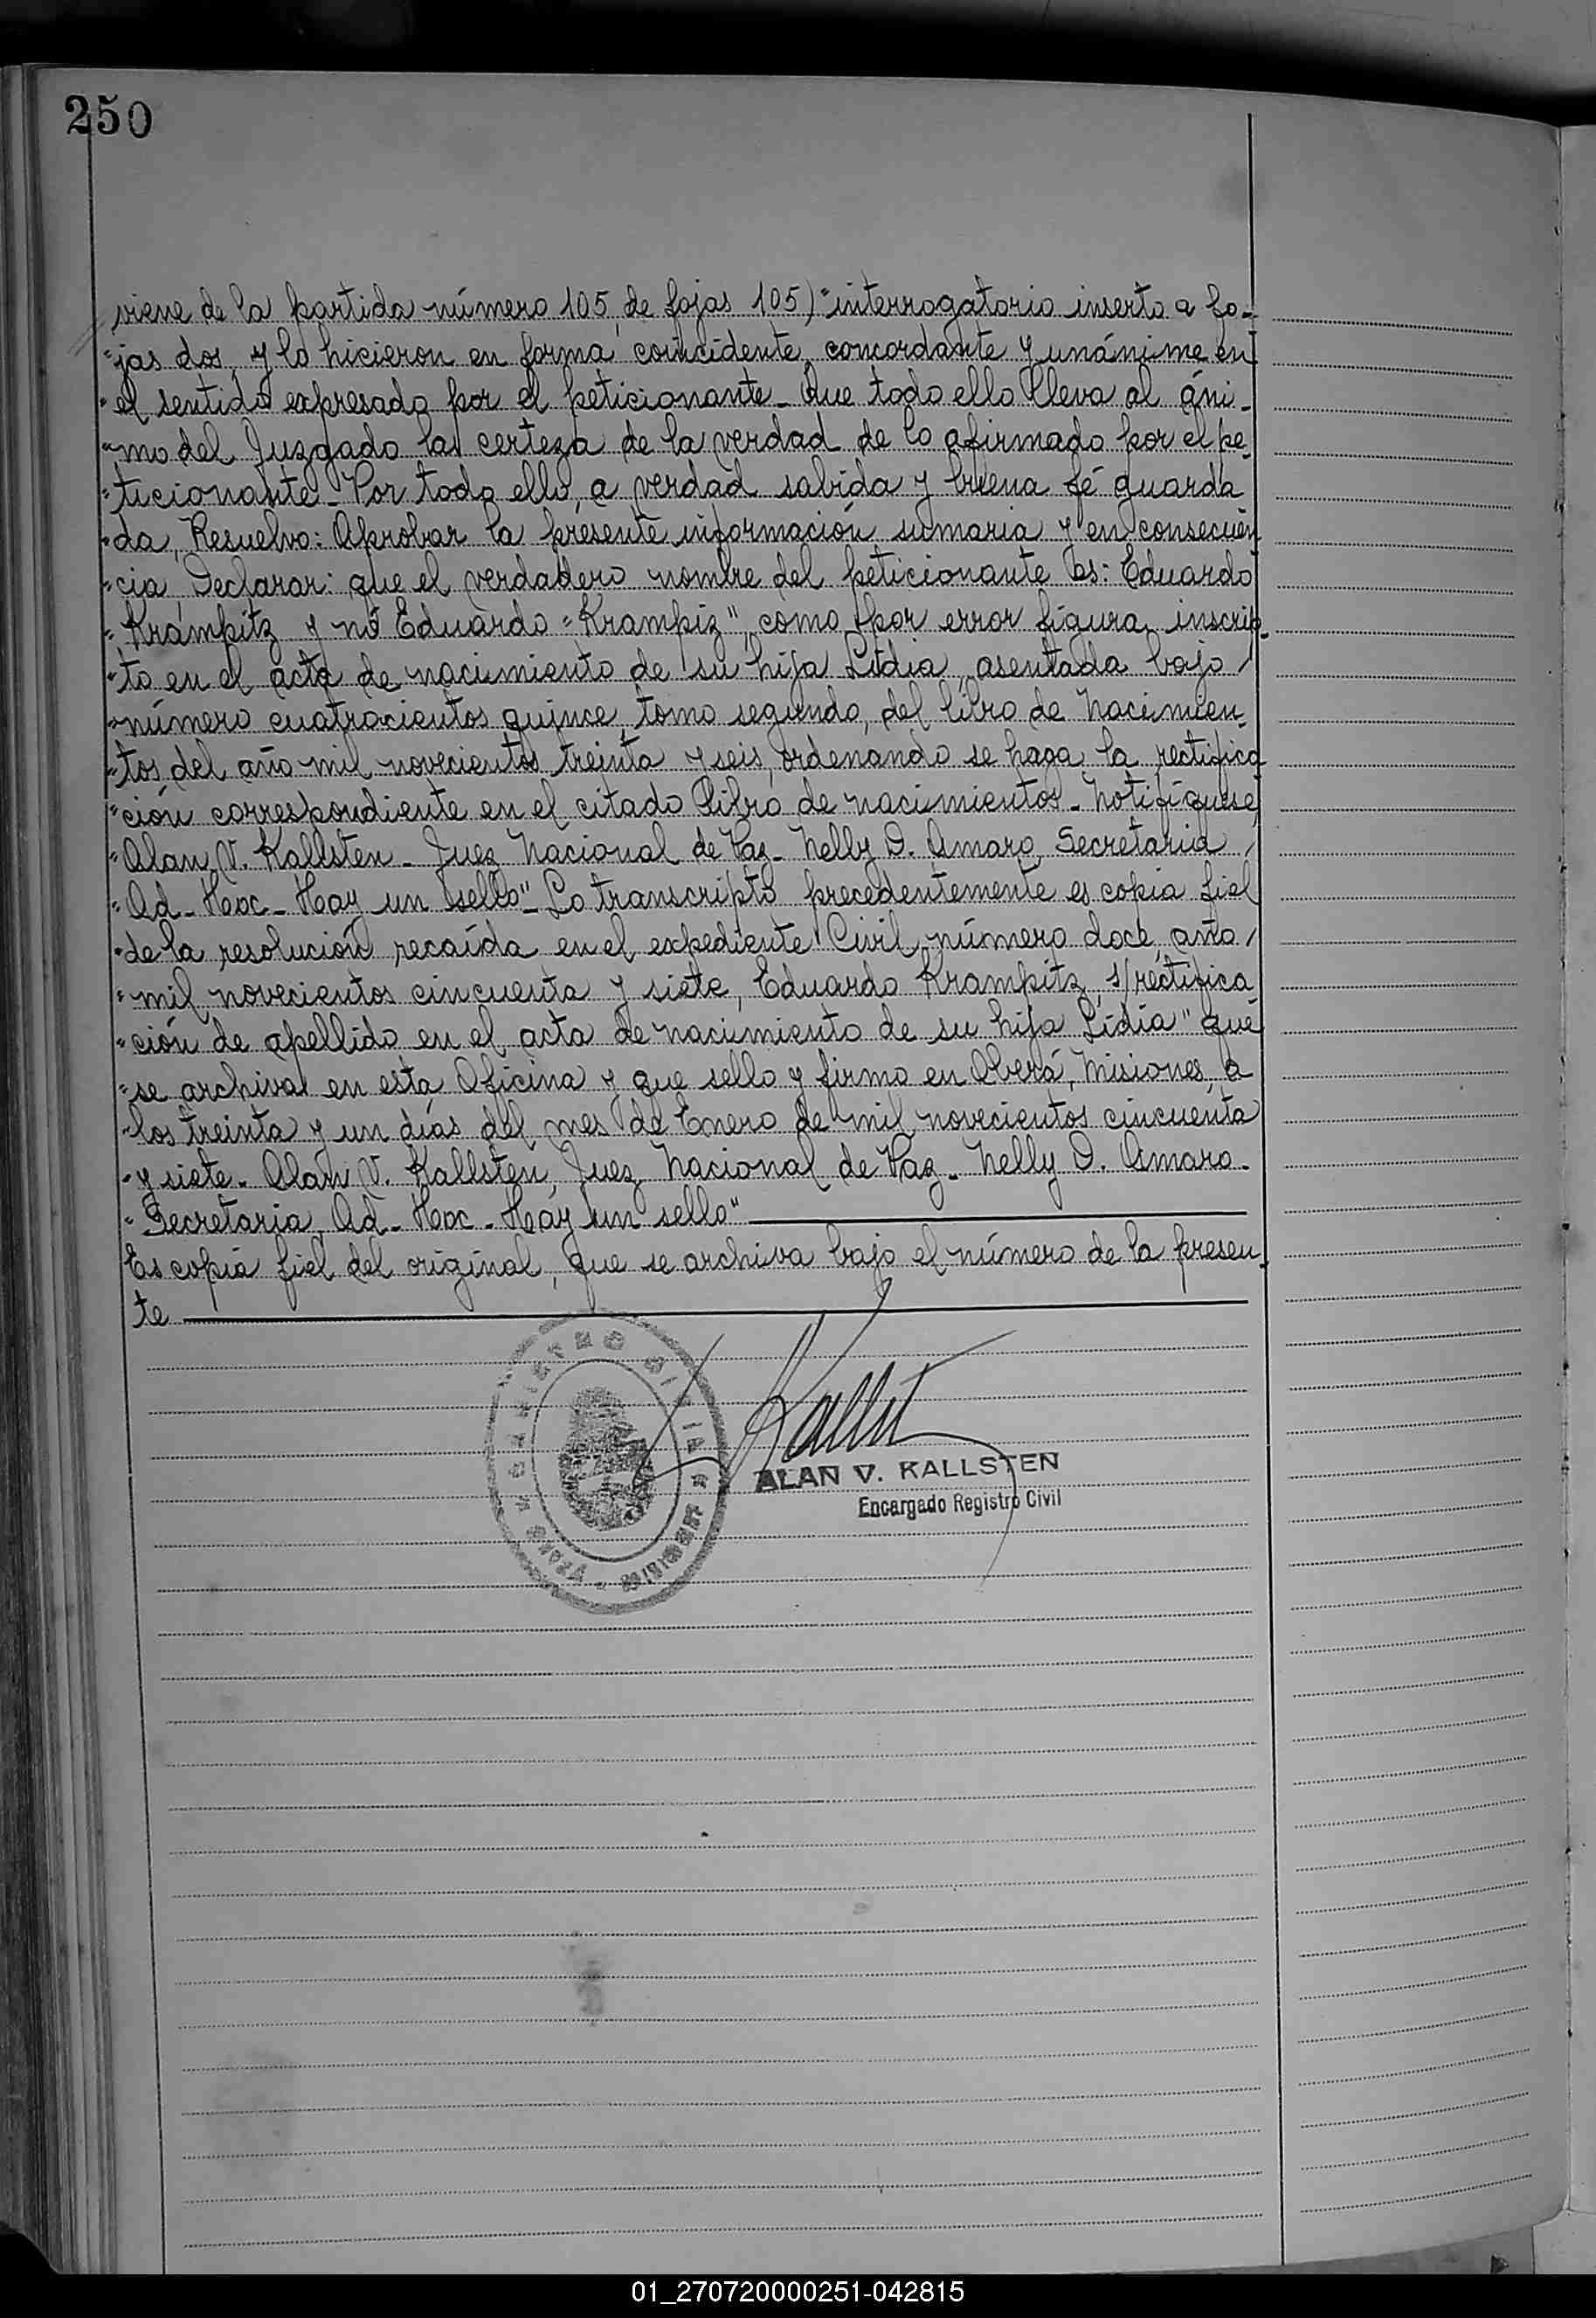 250
viene de la partida número 105, de fojas 105) "interrogatorio inserto a fo-
"jas dos, y lo hicieron en forma coincidente, concordante y unánime en
"el sentido expresado por el peticionante_ Que todo ello lleva al áni-
"mo del Juzgado la certeza de la verdad de lo afirmado por el pe-
"ticionante_ Por todo ello, a verdad sabida y buena fé guarda
"da, Resuelvo: Aprobar la presente información sumaria y en consecuen
"cia, Declarar: que el verdadero nombre del peticionante es: Eduardo
"Krampitz y nó Eduardo "Krampiz", como por error figura inscrip-
"to en el acta de nacimiento de su hija Lidia, asentada bajo /
"número cuatrocientos quince, tomo segundo, del libro de Nacimien-
"tos del año mil novecientos treinta y seis, ordenando se haga la rectifica
"ción correspondiente en el citado libro de nacimientos_ Notifíquese,
"Alan V. Kallsten_ Juez Nacional de Paz_ Nelly D. Amaro, Secretaria /
"Ad-Hoc_ Hay un sello"_ Lo transcripto precedentemente es copia fiel
"de la resolución recaída en el expediente Civil, número doce, año /
"mil novecientos cincuenta y siete, Eduardo Krampitz, s/rectifica
"ción de apellido en el acta de nacimiento de su hija Lidia" que
"se archiva en esta Oficina y que sello y firmo en Oberá, Misiones, a
"los treinta y un días del mes de Enero de mil novecientos cincuenta
"y siete_ Alan V. Kallsten, Juez Nacional de Paz_ Nelly D. Amaro_
"Secretaria Ad-Hoc_ Hay un sello"
Es copia fiel del original, que se archiva bajo el número de la presen-
te
ALAN V. KALLSTEN
Encargado Registro Civil
01_270720000251-042815